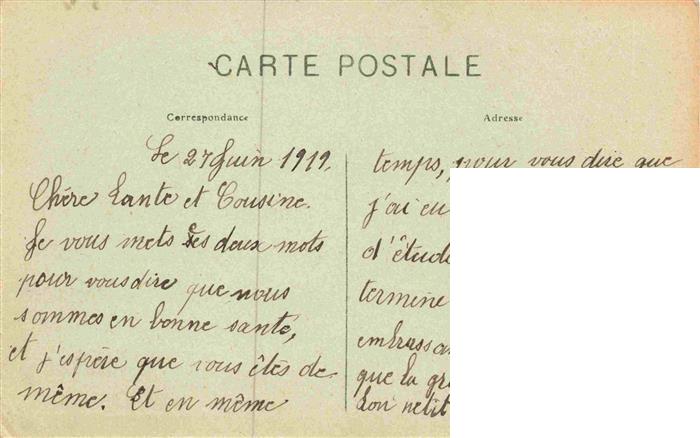 CARTE POSTALE
Correspondance
Adresse
Le 27 Juin 1919.
Chére Tante et Cousine.
Je vous mets ces deux mots
pour vous dire que nous
sommes en bonne sante,
et j'espére que vous êtes de
même. Et en même
temps, pour vous dire que
j'ai eu
d'étude
termine
embrassa
que la gr
Ton petit